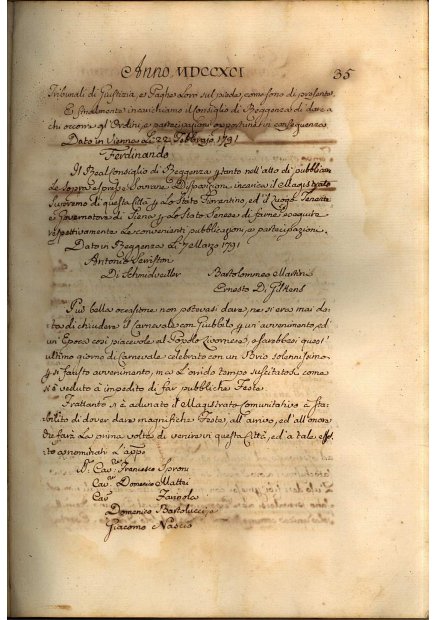 Anno MDCCXCI 35
Tribunali di Giustizia, e Paghe Loro sul piede, come sono di presente.
E finalmente incarichiamo il Consiglio di Reggenza di dare a
chi occorre gl'Ordini, e partecipazioni opportune in conseguenza
Dato in Vienna Li 22 Febbrajo 1791
Ferdinando
Il Real Consiglio di Reggenza p tanto nell'atto di pubblicare
Le sopra espresse Sovrane Disposizioni, incarica il Magistrato
Supremo di questa Città p Lo Stato Fiorentino, ed il Luogo Tenente
e Governatore di Siena p Lo Stato Senese di farne eseguire
respettivamente Le convenienti pubblicazioni, e partecipazioni.
Dato in Reggenza Li 7 Marzo 1791
Antonio Serristori
Di Schmidveiller Bartolommeo Martini
Ernesto D. Gilkens
Più bella occasione non potevasi dare, ne si era mai da-
to di chiudere il Carnevale con Giubbilo, p un'avvenimento, ed
un Epoca così piacevole al Popolo Livornese, e sarebbesi quest'
ultimo giorno di Carnevale celebrato con un Brio solennissimo
p si fausto avvenimento, ma L'orrido tempo suscitatosi come
si è veduto à impedito di far pubbliche Feste
Frattanto s'è adunato il Magistrato Comunitativo à Sta-
bilito di dover dare magnifiche Feste, all'arrivo, ed all'onore
che farà La prima volta di venire in questa Città, ed a tale effet-
to à nominati L'app.
Cav. Francesco Sproni
Cav. Domenico Mattei
Cav.
Domenico Bartolucci, e
Giacomo